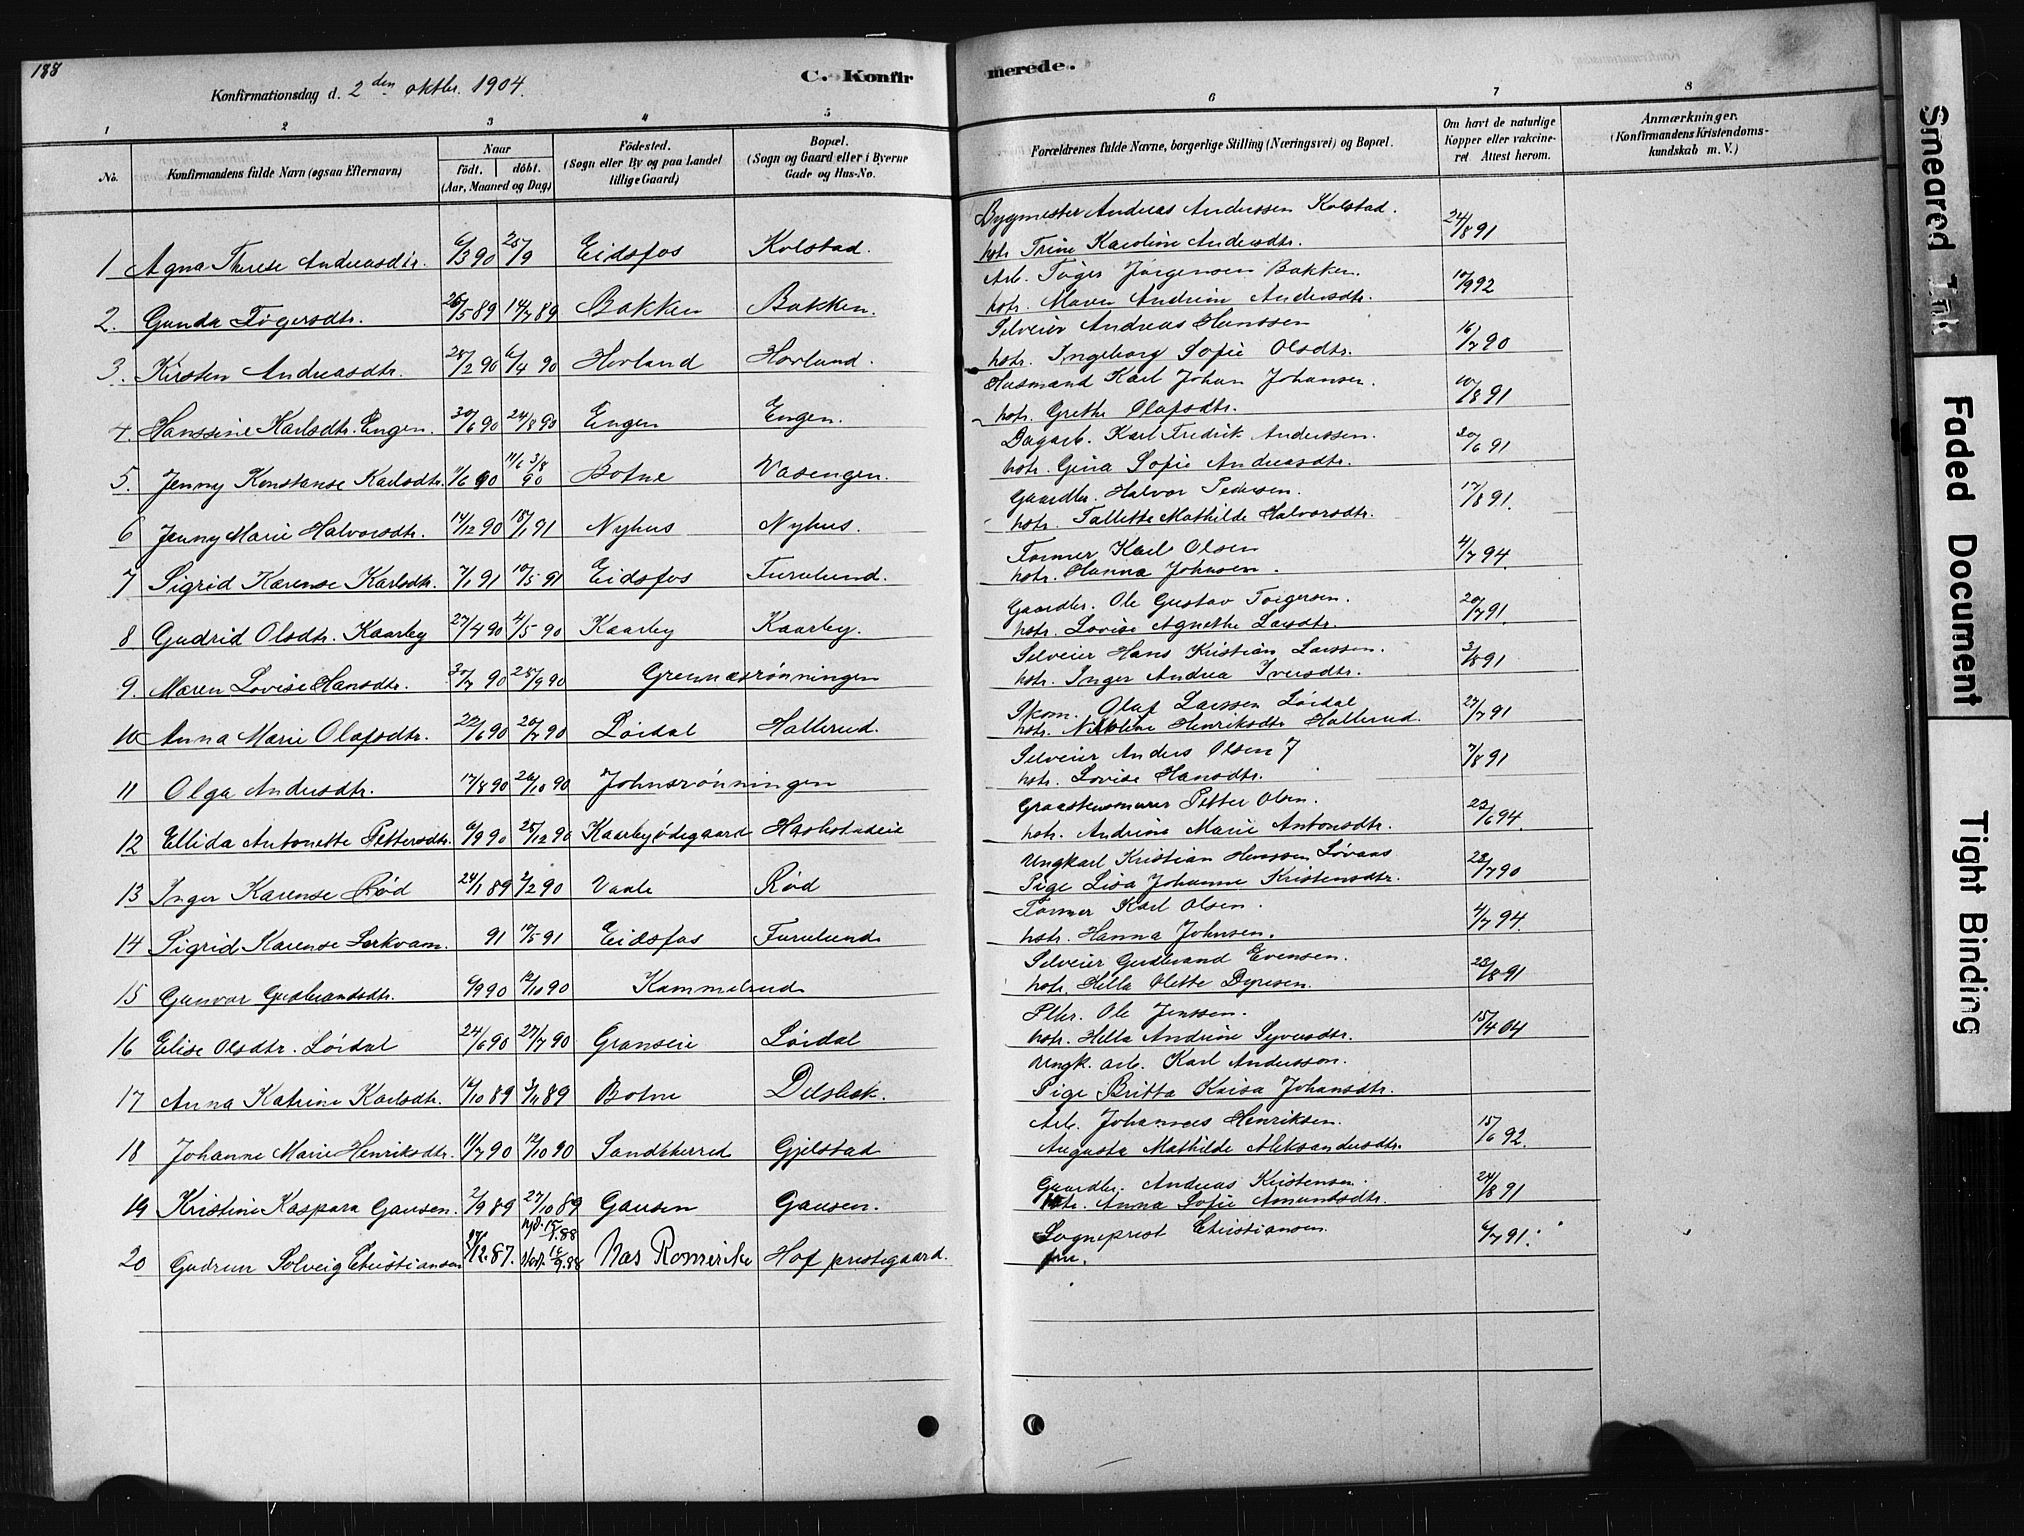 188
Konfirmationsdag d. 2den oktbr. 1904.
C. Konfir
merede.
1 2 3 4 5 6 7 8
No.
Konfirmandens fulde Navn (ogsaa Efternavn)
Naar
födt. döbt.
(Aar, Maaned og Dag)
Födested.
(Sogn eller By og paa Landet
tillige Gaard)
Bopæl.
(Sogn og Gaard eller i Byerne
Gade og Hus-No.
Forældrenes fulde Navne, borgerlige Stilling (Næringsvei) og Bopæl.
Om havt de naturlige
Kopper eller vakcine-
ret Attest herom.
Anmærkninger.
(Konfirmandens Kristendoms-
kundskab m. V.)
1 Agna Therese Andreasdtr. 6/3 90 25/9 Eidsfos Kolstad.
Bygmester Andreas Anderssen Kolstad.
hstr. Trine Karoline Andersdtr. 24/8 91
2. Gunda Tögersdtr. 26/5 89 14/7 89 Bakken Bakken.
Arb. Töger Jörgensen Bakken.
hstr. Maren Andrine Andersdtr. 10/9 92
3. Kirsten Andreasdtr. 28/2 90 6/4 90 Hovland Hovland.
Selveier Andreas Hanssen
hstr. Ingeborg Sofie Olsdtr. 16/7 90
4. Hanssine Karlsdtr. Engen. 30/6 90 24/8 90 Engen Engen.
Husmand Karl Johan Johansen.
hstr. Grethe Olafsdtr. 10/8 91
5. Jenny Konstanse Karlsdtr. 1/6 90 11/6 3/8 90 Botne Vasengen.
Dagarb. Karl Fredrik Anderssen.
hstr. Gina Sofie Andreasdtr. 20/6 91
6 Jenny Marie Halvorsdtr. 14/12 90 18/1 91 Nyhus Nyhus.
Gaardbr. Halvor Pedersen.
hstr. Tallette Mathilde Halvorsdtr. 17/8 91.
7 Sigrid Karense Karlsdtr. 7/1 91 10/5 91 Eidsfos Furulund.
Former Karl Olsen
hstr. Hanna Johnsen. 4/7 94.
8 Gudrid Olsdtr. Kaarby 27/4 90 4/5 90 Kaarby Kaarby.
Gaardbr. Ole Gustav Torgersen.
hstr. Lovise Agnethe Larsdtr. 20/7 91.
9. Maren Lovise Hansdtr. 30/7 90 28/9 90 Grennesrønningen
Selveier Hans Kristian Larssen.
hstr. Inger Andrea Iversdtr. 3/8 91
10 Anna Marie Olafsdtr. 22/6 90 20/7 90 Löidal Hallerud.
Skom. Olaf Larssen Löidal
hstr. Nikoline Henriksdtr. Hallerud. 27/7 91
11 Olga Andersdtr. 17/8 90 26/10 90 Johnsrønningen
Selveier Anders Olsen
hstr. Lovise Hansdtr. 7/8 91
12 Ellida Antonette Pettersdtr. 6/9 90 28/12 90 Kaarbyödegaard Haslestadeie
Graastensmurer Petter Olsen.
hstr. Andrine Marie Antonsdtr. 22/6 94.
13 Inger Karense Röd 24/1 89 2/2 90 Vaale Röd
Ungkarl Kristian Henssen Lövaas
Pige Lisa Johanne Kristensdtr. 23/7 90
14 Sigrid Karense Lerkvam. 91 10/5 91 Eidsfos Furulund
Former Karl Olsen.
hstr. Hanna Johnsen. 4/7 94.
15 Gunvor Gudbrandsdtr. 6/9 90 12/10 90 Kammelrud
Selveier Gudbrand Evensen.
hstr. Hella Olette Dyresen. 28/8 91
16 Elise Olsdtr. Löidal 24/6 90 27/7 90 Granseie Löidal
Plkr. Ole Jenssen.
hstr. Hella Andrine Syversdtr. 15/4 04
17 Anna Katrine Karlsdtr. 16/10 89 3/11 89 Botne Delsbek.
Ungk. arb. Karl Andersson.
Pige Britta Kaisa Johansdtr.
18 Johanne Marie Henriksdtr. 11/7 90 12/10 90 Sandsherred Gjelstad
Arb. Johannes Henriksen.
Augusta Mathilde Aleksandersdtr. 15/6 92.
19 Kristine Kaspara Gausen. 2/9 89 27/10 89 Gausen Gausen.
Gaardbr. Andreas Kristensen.
hstr. Anna Sofie Amundsdtr. 24/8 91
20 Gudrun Solveig Christiansen 27/12.87. Nes Romerike Hof prestegaard.
Sogneprest Christiansen.
fru. 6/7 91.
Smeared Ink
Faded Document
Tight Binding